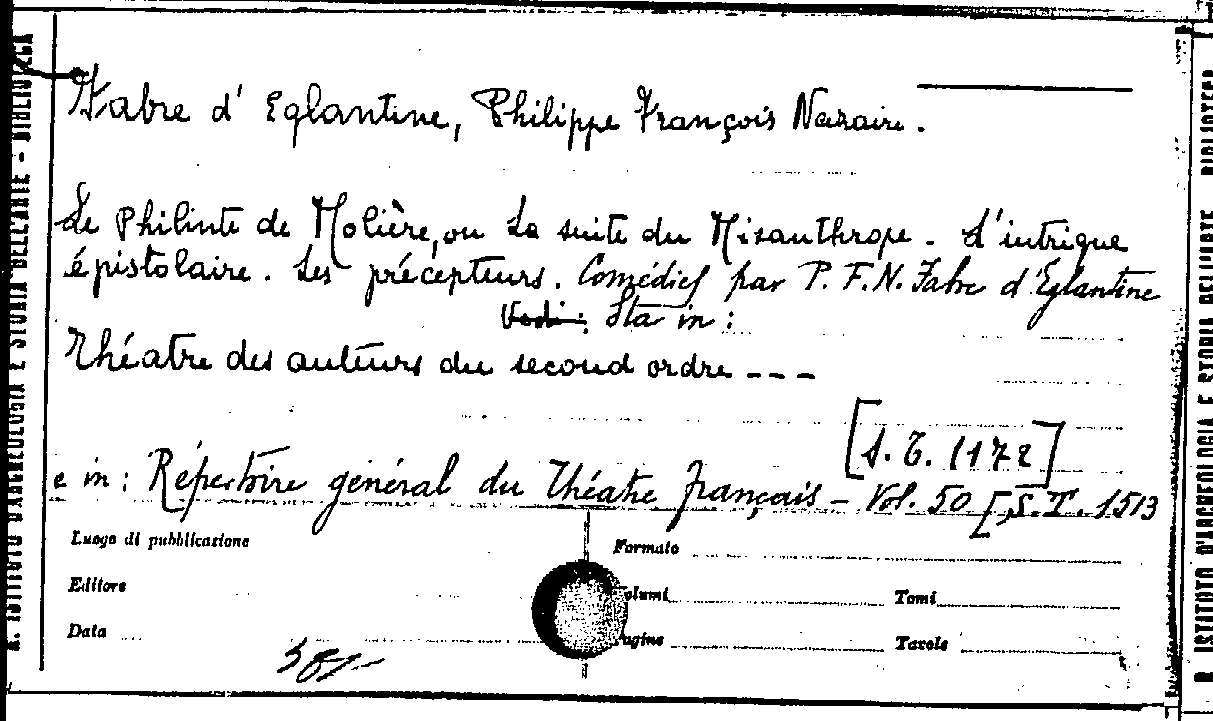 Fabre d' Eglantine, Philippe François Nazaire.
Le Philinte de Molière, ou La suite du Misanthrope. L'intrigue
épistolaire. Les précepteurs. Comédies par P. F. N. Fabre d'Eglantine
Vedi: Sta in:
Théatre des auteurs du second ordre ---
[S. T. 1172]
e in: Répertoire général du Théatre français - Vol. 50 [S. T. 1513
Luogo di pubblicazione
Formato
Editore
Volumi
Tomi
Data
Pagine
Tavole
R. ISTITUTO D'ARCHEOLOGIA E STORIA DELL'ARTE - BIBLIOTECA
R. ISTITUTO D'ARCHEOLOGIA E STORIA DELL'ARTE BIBLIOTECA